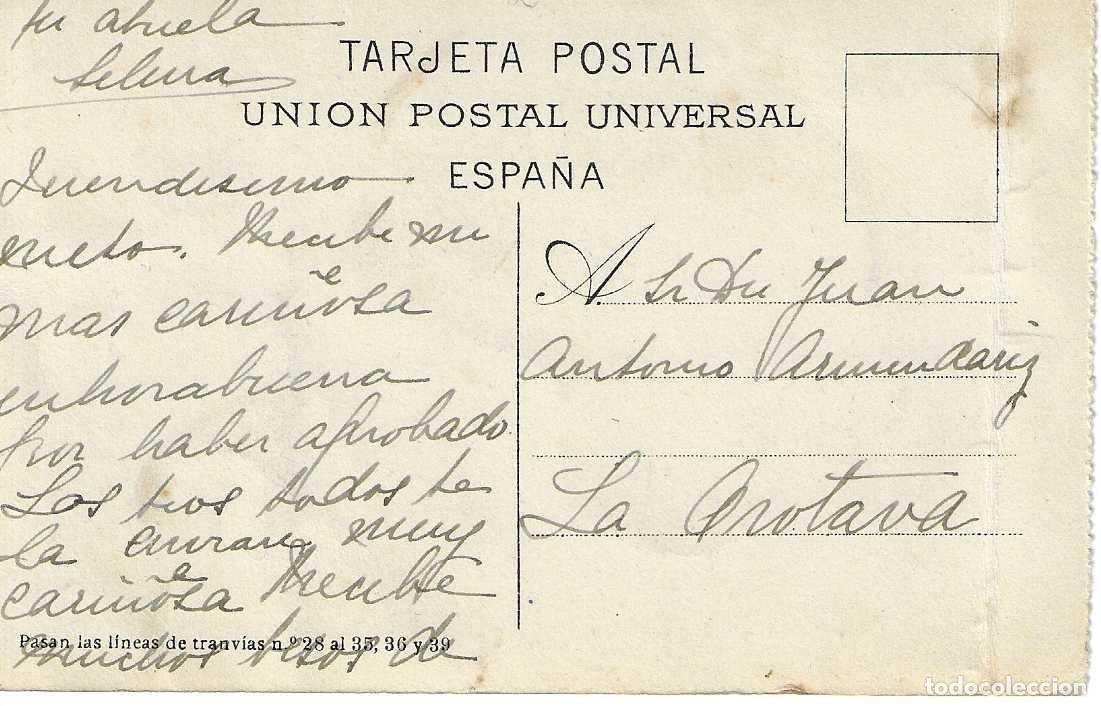 tu abuela
TARJETA POSTAL
UNION POSTAL UNIVERSAL
ESPAÑA
nieto. Recibe mi
mas cariñosa
enhorabuena
por haber aprobado.
Los tios todos te
la envian muy
cariñosa Recibe
muchos besos de
Pasan las líneas de tranvías n.º 28 al 35, 36 y 39
A. Sr Dn Juan
Antonio Armendariz
La Orotava
todocoleccion